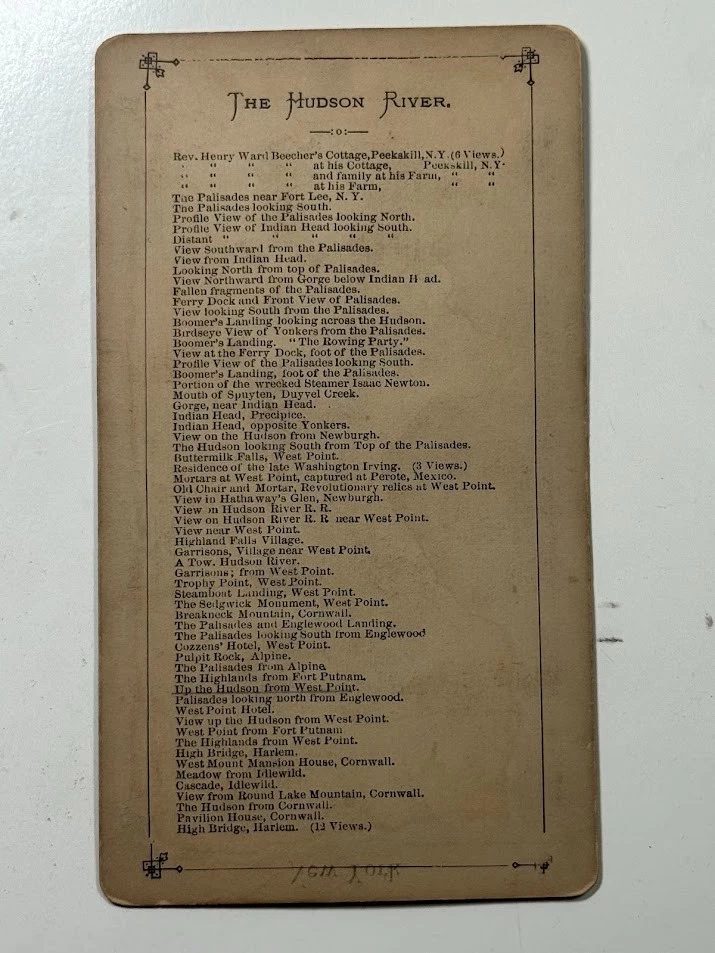 THE HUDSON RIVER.
—:o:—
Rev. Henry Ward Beecher's Cottage, Peekskill, N.Y. (6 Views.)
" " " " at his Cottage, Peekskill, N.Y.
" " " " and family at his Farm, " "
" " " " at his Farm, " "
The Palisades near Fort Lee, N. Y.
The Palisades looking South.
Profile View of the Palisades looking North.
Profile View of Indian Head looking South.
Distant " " " " "
View Southward from the Palisades.
View from Indian Head.
Looking North from top of Palisades.
View Northward from Gorge below Indian H ad.
Fallen fragments of the Palisades.
Ferry Dock and Front View of Palisades.
View looking South from the Palisades.
Boomer's Landing looking across the Hudson.
Birdseye View of Yonkers from the Palisades.
Boomer's Landing. "The Rowing Party."
View at the Ferry Dock, foot of the Palisades.
Profile View of the Palisades looking South.
Boomer's Landing, foot of the Palisades.
Portion of the wrecked Steamer Isaac Newton.
Mouth of Spuyten, Duyvel Creek.
Gorge, near Indian Head.
Indian Head, Precipice.
Indian Head, opposite Yonkers.
View on the Hudson from Newburgh.
The Hudson looking South from Top of the Palisades.
Buttermilk Falls, West Point.
Residence of the late Washington Irving. (3 Views.)
Mortars at West Point, captured at Perote, Mexico.
Old Chair and Mortar, Revolutionary relics at West Point.
View in Hathaway's Glen, Newburgh.
View on Hudson River R. R.
View on Hudson River R. R near West Point.
View near West Point.
Highland Falls Village.
Garrisons, Village near West Point.
A Tow. Hudson River.
Garrisons; from West Point.
Trophy Point, West Point.
Steamboat Landing, West Point.
The Sedgwick Monument, West Point.
Breakneck Mountain, Cornwall.
The Palisades and Englewood Landing.
The Palisades looking South from Englewood
Cozzens' Hotel, West Point.
Pulpit Rock, Alpine.
The Palisades from Alpine.
The Highlands from Fort Putnam.
Up the Hudson from West Point.
Palisades looking north from Englewood.
West Point Hotel.
View up the Hudson from West Point.
West Point from Fort Putnam
The Highlands from West Point.
High Bridge, Harlem.
West Mount Mansion House, Cornwall.
Meadow from Idlewild.
Cascade, Idlewild.
View from Round Lake Mountain, Cornwall.
The Hudson from Cornwall.
Pavilion House, Cornwall.
High Bridge, Harlem. (12 Views.)
New York